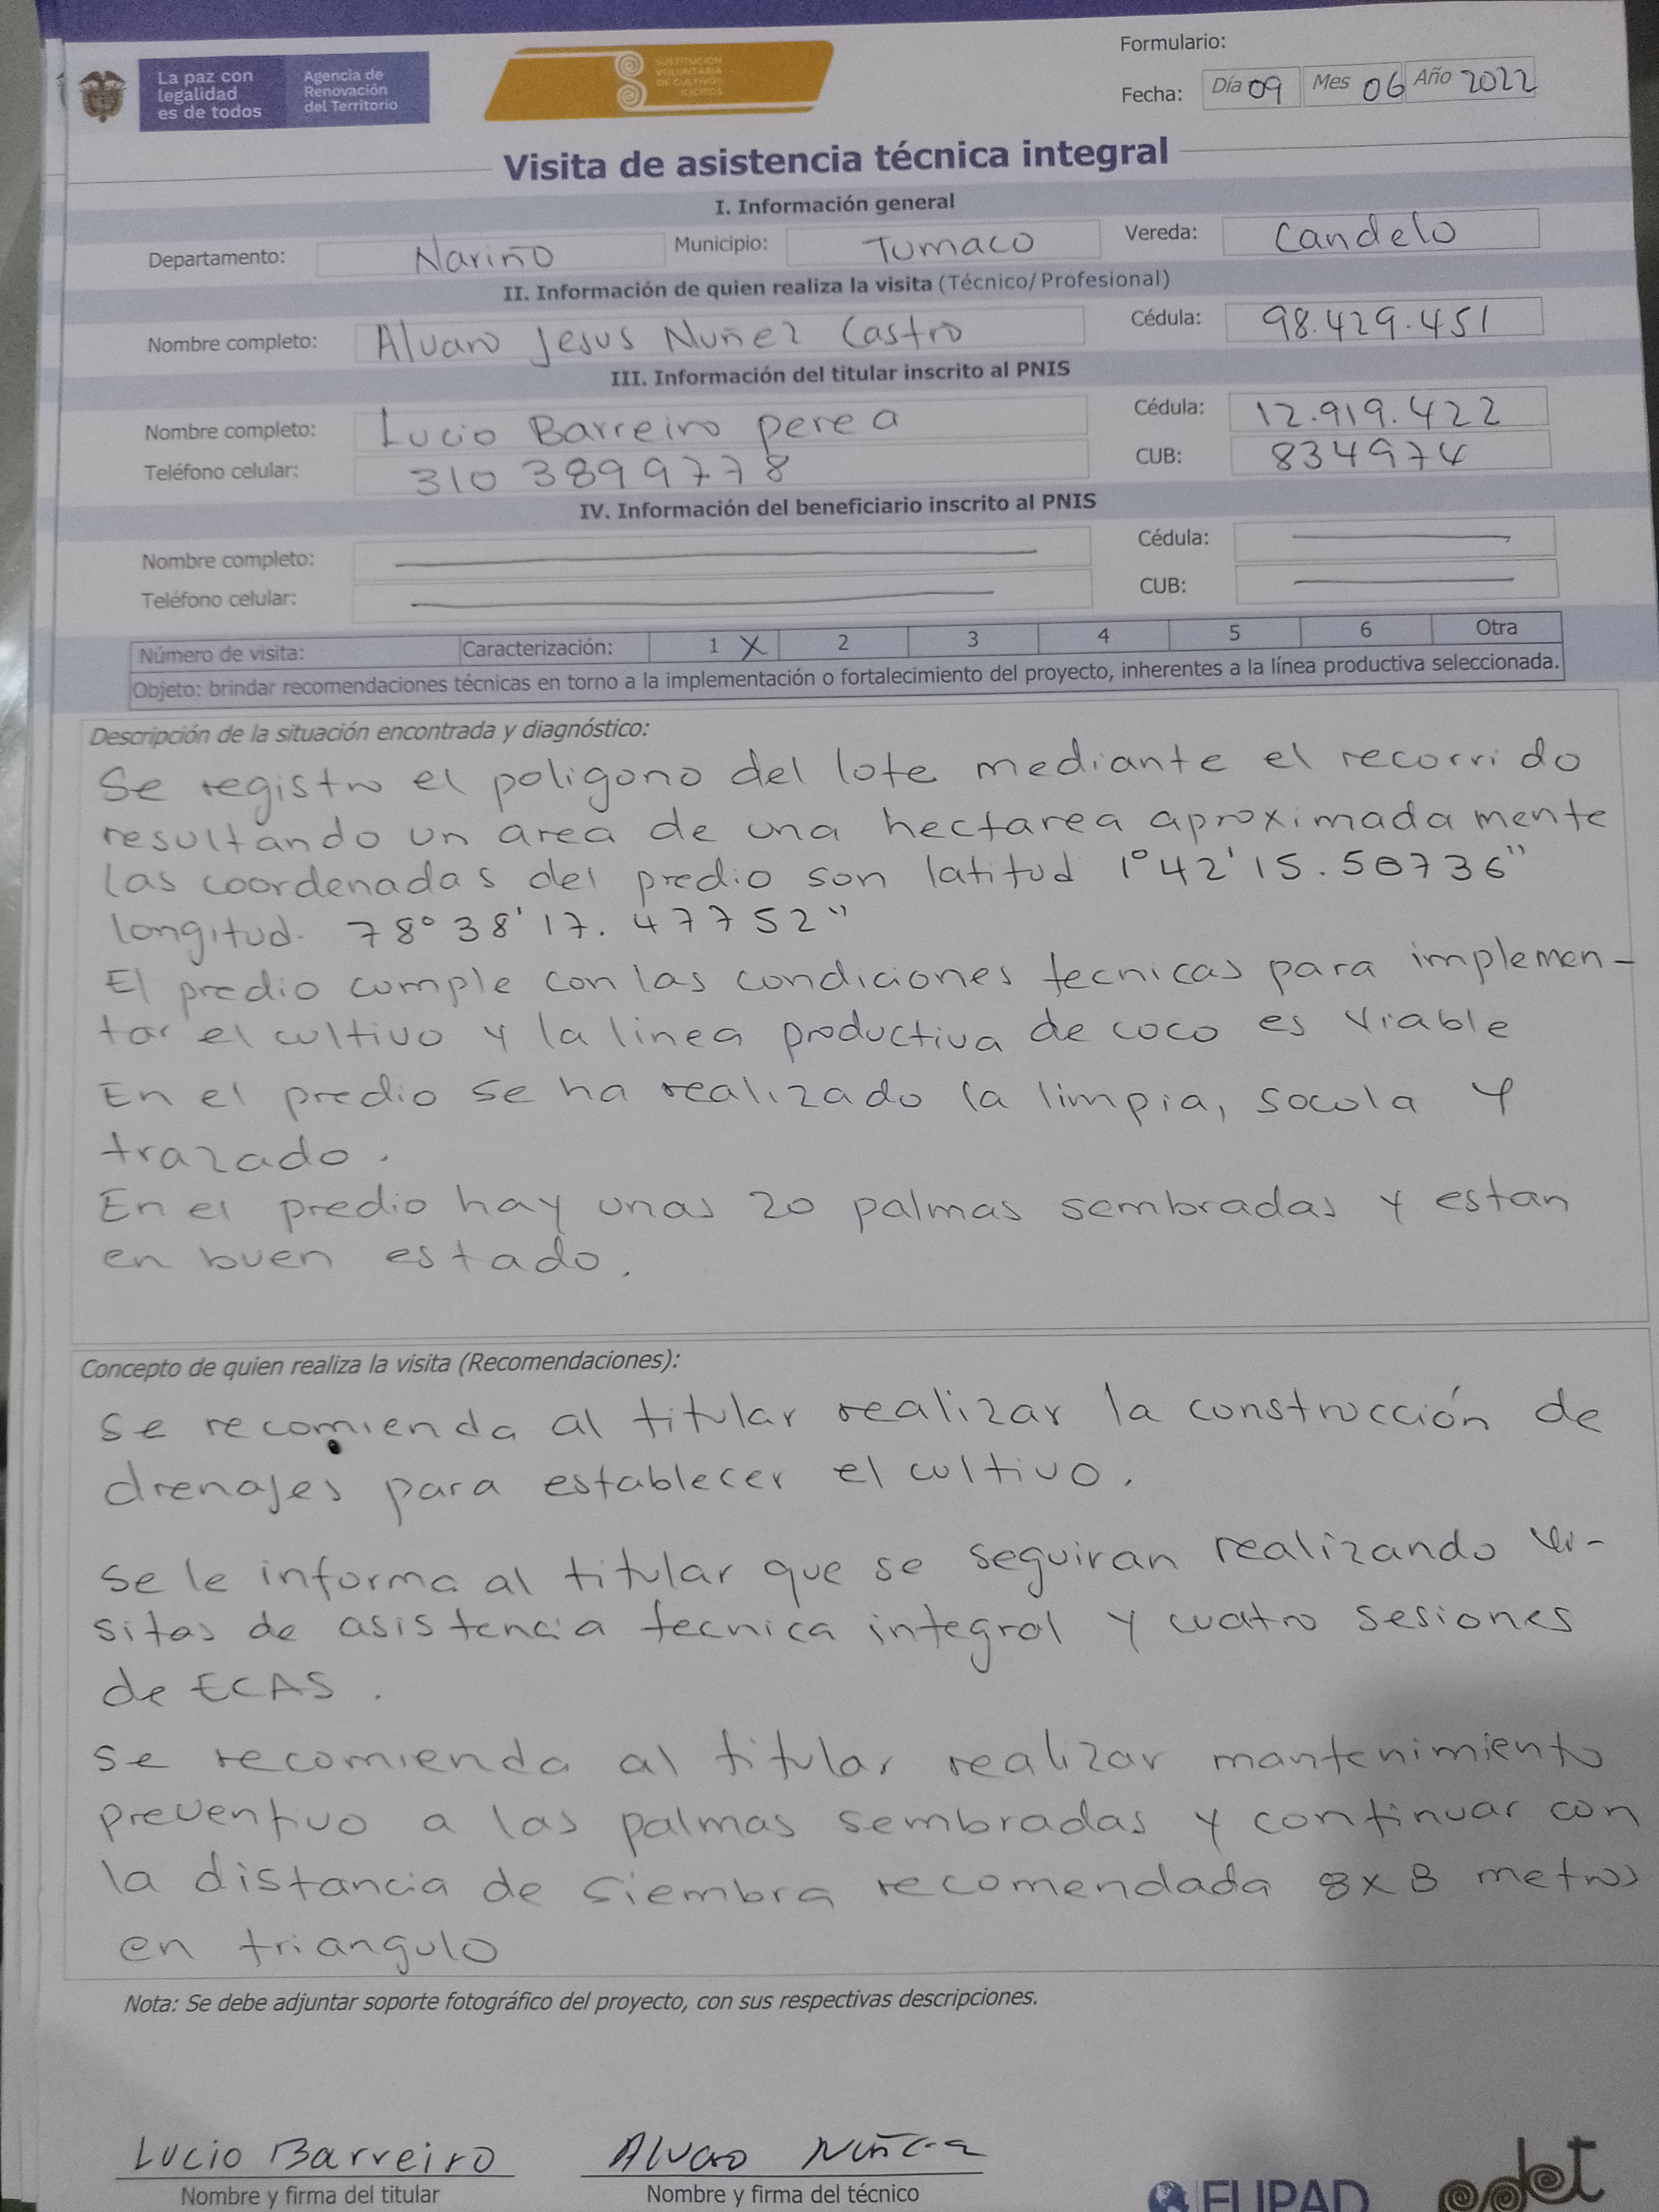 La paz con
legalidad
es de todos
Agencia de
Renovación
del Territorio
SUSTITUCIÓN
VOLUNTARIA
DE CULTIVOS
ILÍCITOS
Formulario:
Fecha: Día 09 Mes 06 Año 2022
Visita de asistencia técnica integral
I. Información general
Departamento: Nariño Municipio: Tumaco Vereda: Candelo
II. Información de quien realiza la visita (Técnico/Profesional)
Nombre completo: Alvaro Jesus Nuñez Castro Cédula: 98.429.451
III. Información del titular inscrito al PNIS
Nombre completo: Lucio Barreiro perea Cédula: 12.919.422
Teléfono celular: 310 3899778 CUB: 834974
IV. Información del beneficiario inscrito al PNIS
Nombre completo: Cédula:
Teléfono celular: CUB:
Número de visita: Caracterización: 1 X 2 3 4 5 6 Otra
Objeto: brindar recomendaciones técnicas en torno a la implementación o fortalecimiento del proyecto, inherentes a la línea productiva seleccionada.
Descripción de la situación encontrada y diagnóstico:
Se registro el poligono del lote mediante el recorrido
resultando un area de una hectarea aproximadamente
las coordenadas del predio son latitud 1°42'15.50736"
longitud. 78°38'17.47752"
El predio cumple con las condiciones tecnicas para implemen-
tar el cultivo y la linea productiva de coco es viable
En el predio se ha realizado la limpia, socola y
trazado.
En el predio hay unas 20 palmas sembradas y estan
en buen estado.
Concepto de quien realiza la visita (Recomendaciones):
Se recomienda al titular realizar la construcción de
drenajes para establecer el cultivo.
Se le informa al titular que se seguiran realizando vi-
sitas de asistencia tecnica integral y cuatro sesiones
de ECAS.
Se recomienda al titular realizar mantenimiento
preventivo a las palmas sembradas y continuar con
la distancia de siembra recomendada 8x8 metros
en triangulo
Nota: Se debe adjuntar soporte fotográfico del proyecto, con sus respectivas descripciones.
Lucio Barreiro Alvaro Núñez
Nombre y firma del titular Nombre y firma del técnico
FUPAD